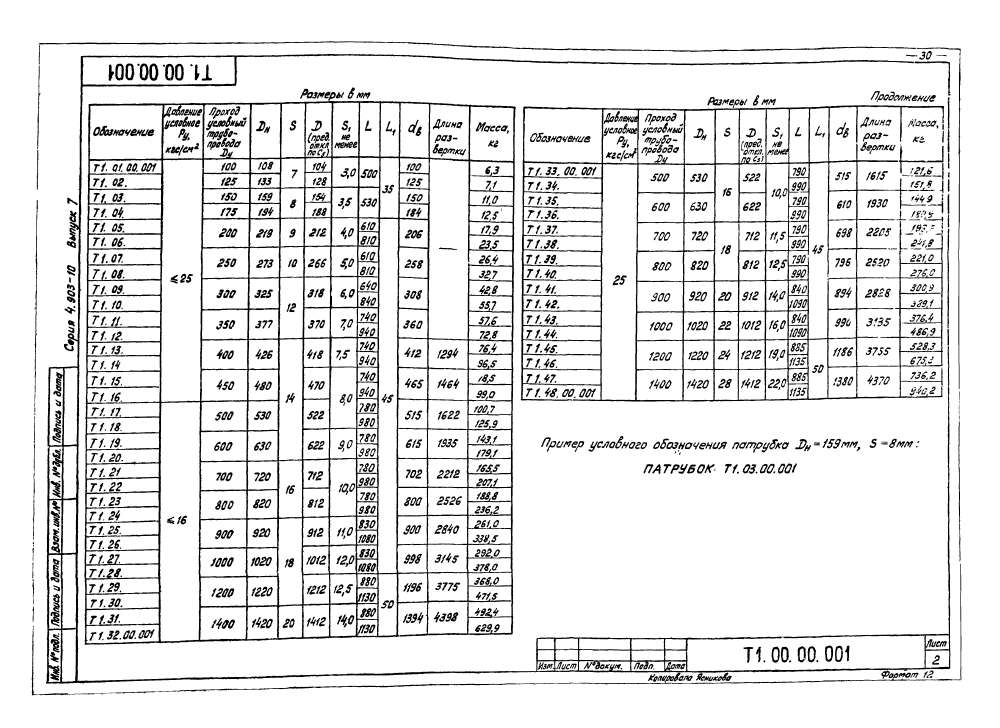 30
Т1.00.00.001
Серия 4.903-10 Выпуск 7
Размеры в мм
Обозначение | Давление условное Ру, кгс/см² | Проход условный трубопровода Dу | Dн | S | D (пред. откл. по С5) | S1 не менее | L | L1 | dв | Длина развертки | Масса, кг
Т1.01.00.001 | ≤25 | 100 | 108 | 7 | 104 | 3,0 | 500 | 35 | 100 | — | 6,3
Т1.02. | 125 | 133 | 128 | 125 | 7,1
Т1.03. | 150 | 159 | 8 | 154 | 3,5 | 530 | 150 | 11,0
Т1.04. | 175 | 194 | 188 | 184 | 12,5
Т1.05. | 200 | 219 | 9 | 212 | 4,0 | 610 | 45 | 206 | 17,9
Т1.06. | 810 | 23,5
Т1.07. | 250 | 273 | 10 | 266 | 5,0 | 610 | 258 | 26,4
Т1.08. | 810 | 32,7
Т1.09. | 300 | 325 | 12 | 318 | 6,0 | 640 | 308 | 42,8
Т1.10. | 840 | 55,7
Т1.11. | 350 | 377 | 370 | 7,0 | 740 | 360 | 57,6
Т1.12. | 940 | 72,8
Т1.13. | 400 | 426 | 14 | 418 | 7,5 | 740 | 412 | 1294 | 76,4
Т1.14 | 940 | 96,5
Т1.15. | 450 | 480 | 470 | 8,0 | 740 | 465 | 1464 | 18,5
Т1.16. | 940 | 99,0
Т1.17. | ≤16 | 500 | 530 | 522 | 780 | 515 | 1622 | 100,7
Т1.18. | 980 | 125,9
Т1.19. | 600 | 630 | 622 | 9,0 | 780 | 615 | 1935 | 143,1
Т1.20. | 980 | 179,1
Т1.21 | 700 | 720 | 16 | 712 | 10,0 | 780 | 702 | 2212 | 165,5
Т1.22 | 980 | 207,1
Т1.23 | 800 | 820 | 812 | 780 | 800 | 2526 | 188,8
Т1.24 | 980 | 236,2
Т1.25. | 900 | 920 | 18 | 912 | 11,0 | 830 | 50 | 900 | 2840 | 261,0
Т1.26. | 1080 | 338,5
Т1.27. | 1000 | 1020 | 1012 | 12,0 | 830 | 998 | 3145 | 292,0
Т1.28. | 1080 | 378,0
Т1.29. | 1200 | 1220 | 1212 | 12,5 | 880 | 1196 | 3775 | 368,0
Т1.30. | 1130 | 471,5
Т1.31. | 1400 | 1420 | 20 | 1412 | 14,0 | 880 | 1394 | 4398 | 492,4
Т1.32.00.001 | 1130 | 629,9
Размеры в мм Продолжение
Обозначение | Давление условное Ру, кгс/см² | Проход условный трубопровода Dу | Dн | S | D (пред. откл. по С5) | S1 не менее | L | L1 | dв | Длина развертки | Масса, кг
Т1.33.00.001 | 25 | 500 | 530 | 16 | 522 | 10,0 | 790 | 45 | 515 | 1615 | 121,6
Т1.34. | 990 | 151,8
Т1.35. | 600 | 630 | 622 | 790 | 610 | 1930 | 144,9
Т1.36. | 990
Т1.37. | 700 | 720 | 18 | 712 | 11,5 | 790 | 698 | 2205
Т1.38. | 990 | 241,8
Т1.39. | 800 | 820 | 812 | 12,5 | 790 | 796 | 2520 | 221,0
Т1.40. | 990 | 276,0
Т1.41. | 900 | 920 | 20 | 912 | 14,0 | 840 | 50 | 894 | 2828 | 300,9
Т1.42. | 1090 | 389,1
Т1.43. | 1000 | 1020 | 22 | 1012 | 16,0 | 840 | 990 | 3135 | 376,4
Т1.44. | 1090 | 486,9
Т1.45. | 1200 | 1220 | 24 | 1212 | 19,0 | 885 | 1186 | 3755 | 528,3
Т1.46. | 1135
Т1.47. | 1400 | 1420 | 28 | 1412 | 22,0 | 885 | 1380 | 4370 | 736,2
Т1.48.00.001 | 1135 | 940,2
Пример условного обозначения патрубка Dн=159мм, S=8мм:
ПАТРУБОК Т1.03.00.001
Инв. № подл. Подпись и дата Взам. инв. № Инв. № дубл. Подпись и дата
Изм. Лист № докум. Подп. Дата
Т1.00.00.001
Лист
2
Копировала Ясникова
Формат 12